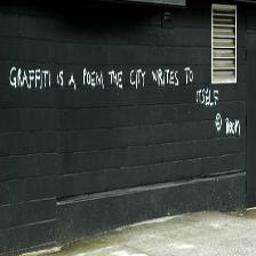 GRAFFITI IS A POEM THE CITY WRITES TO
ITSELF